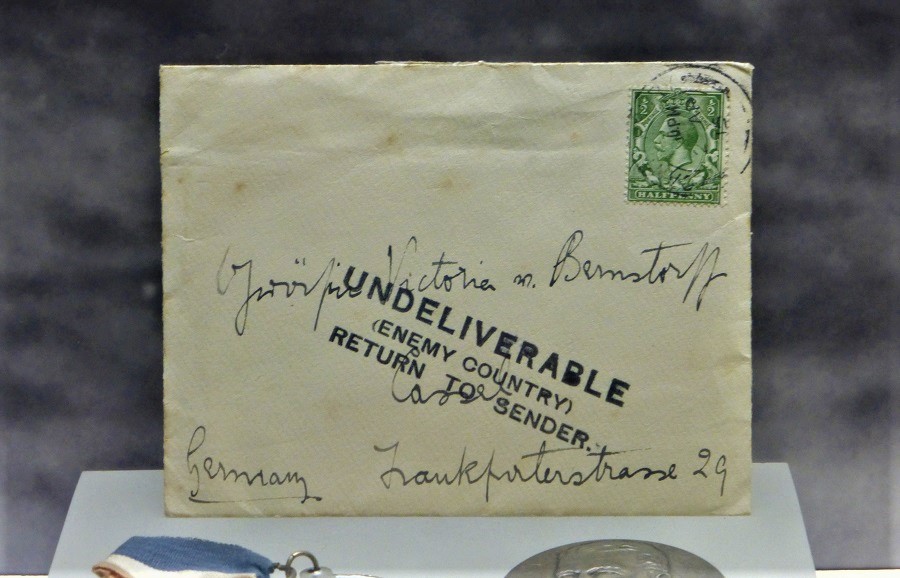 ½ ½
HALFPENNY
Gräfin Victoria v. Bernstorff
UNDELIVERABLE
(ENEMY COUNTRY)
RETURN TO SENDER.
Cassel
Germany Frankfurterstrasse 29